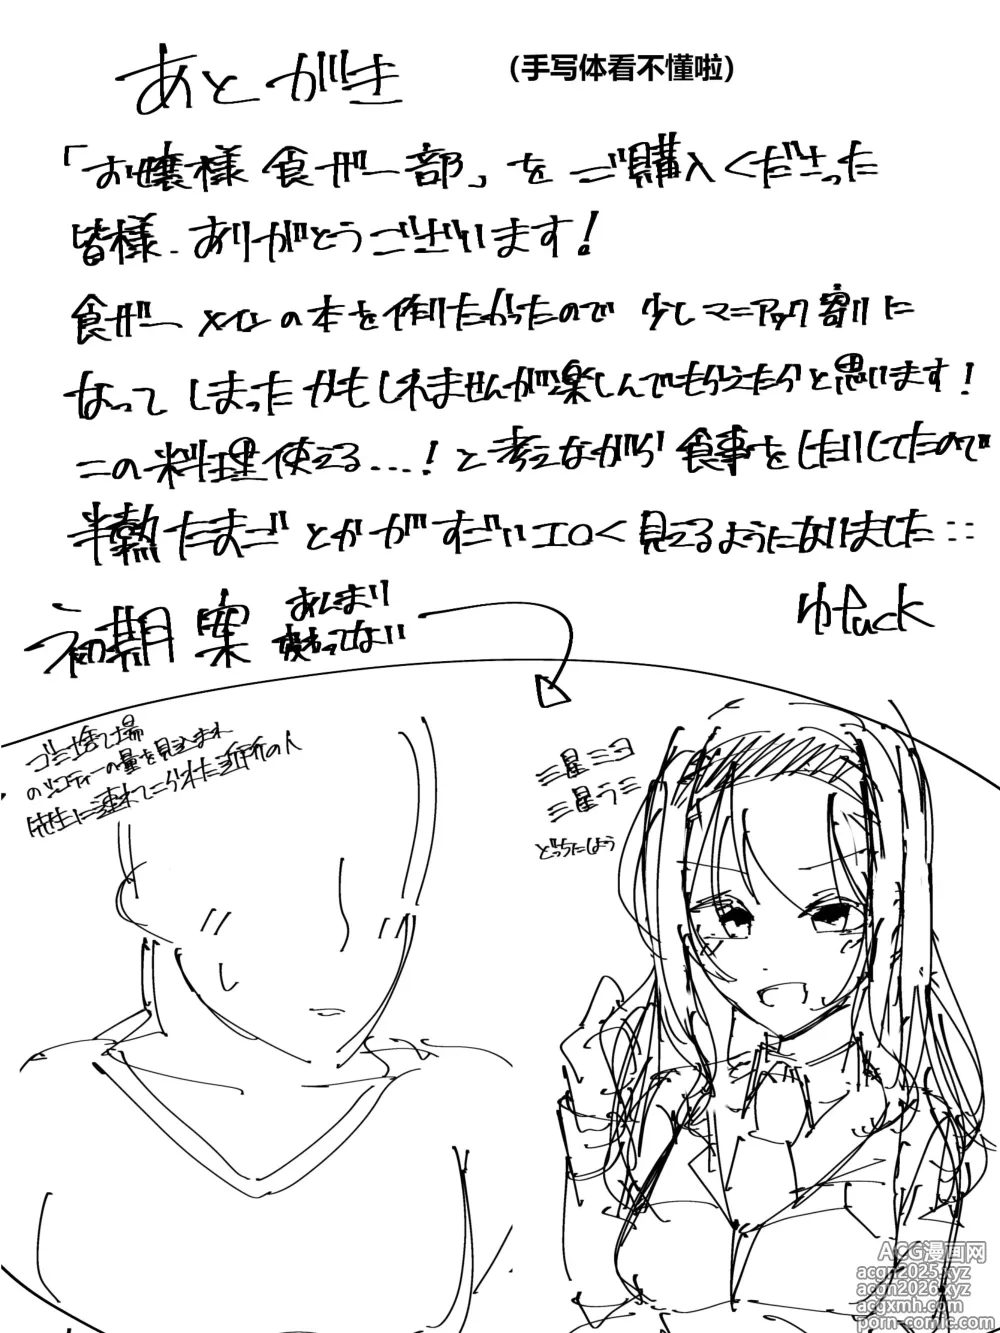 あとがき
(手写体看不懂啦)
「お嬢様食ザー部」をご購入くださった
皆様、ありがとうございます!
食ザーメインの本を作りたかったので少しマニアック寄りに
なってしまったかもしれませんが楽しんでもらえたらと思います!
この料理使える...!と考えながら食事をしたりしてたので
半熟たまごとかがすごいエロく見えるようになりました
初期案
あんまり
変わってない
ゴミ捨て場
の量を見込まれ
先生に連れてこられた近所の人
三星ミヨ
三星ラミ
どっちにしよう
ACG漫画网
acgn2025.xyz
acgn2026.xyz
acgxmh.com
porn-comic.com